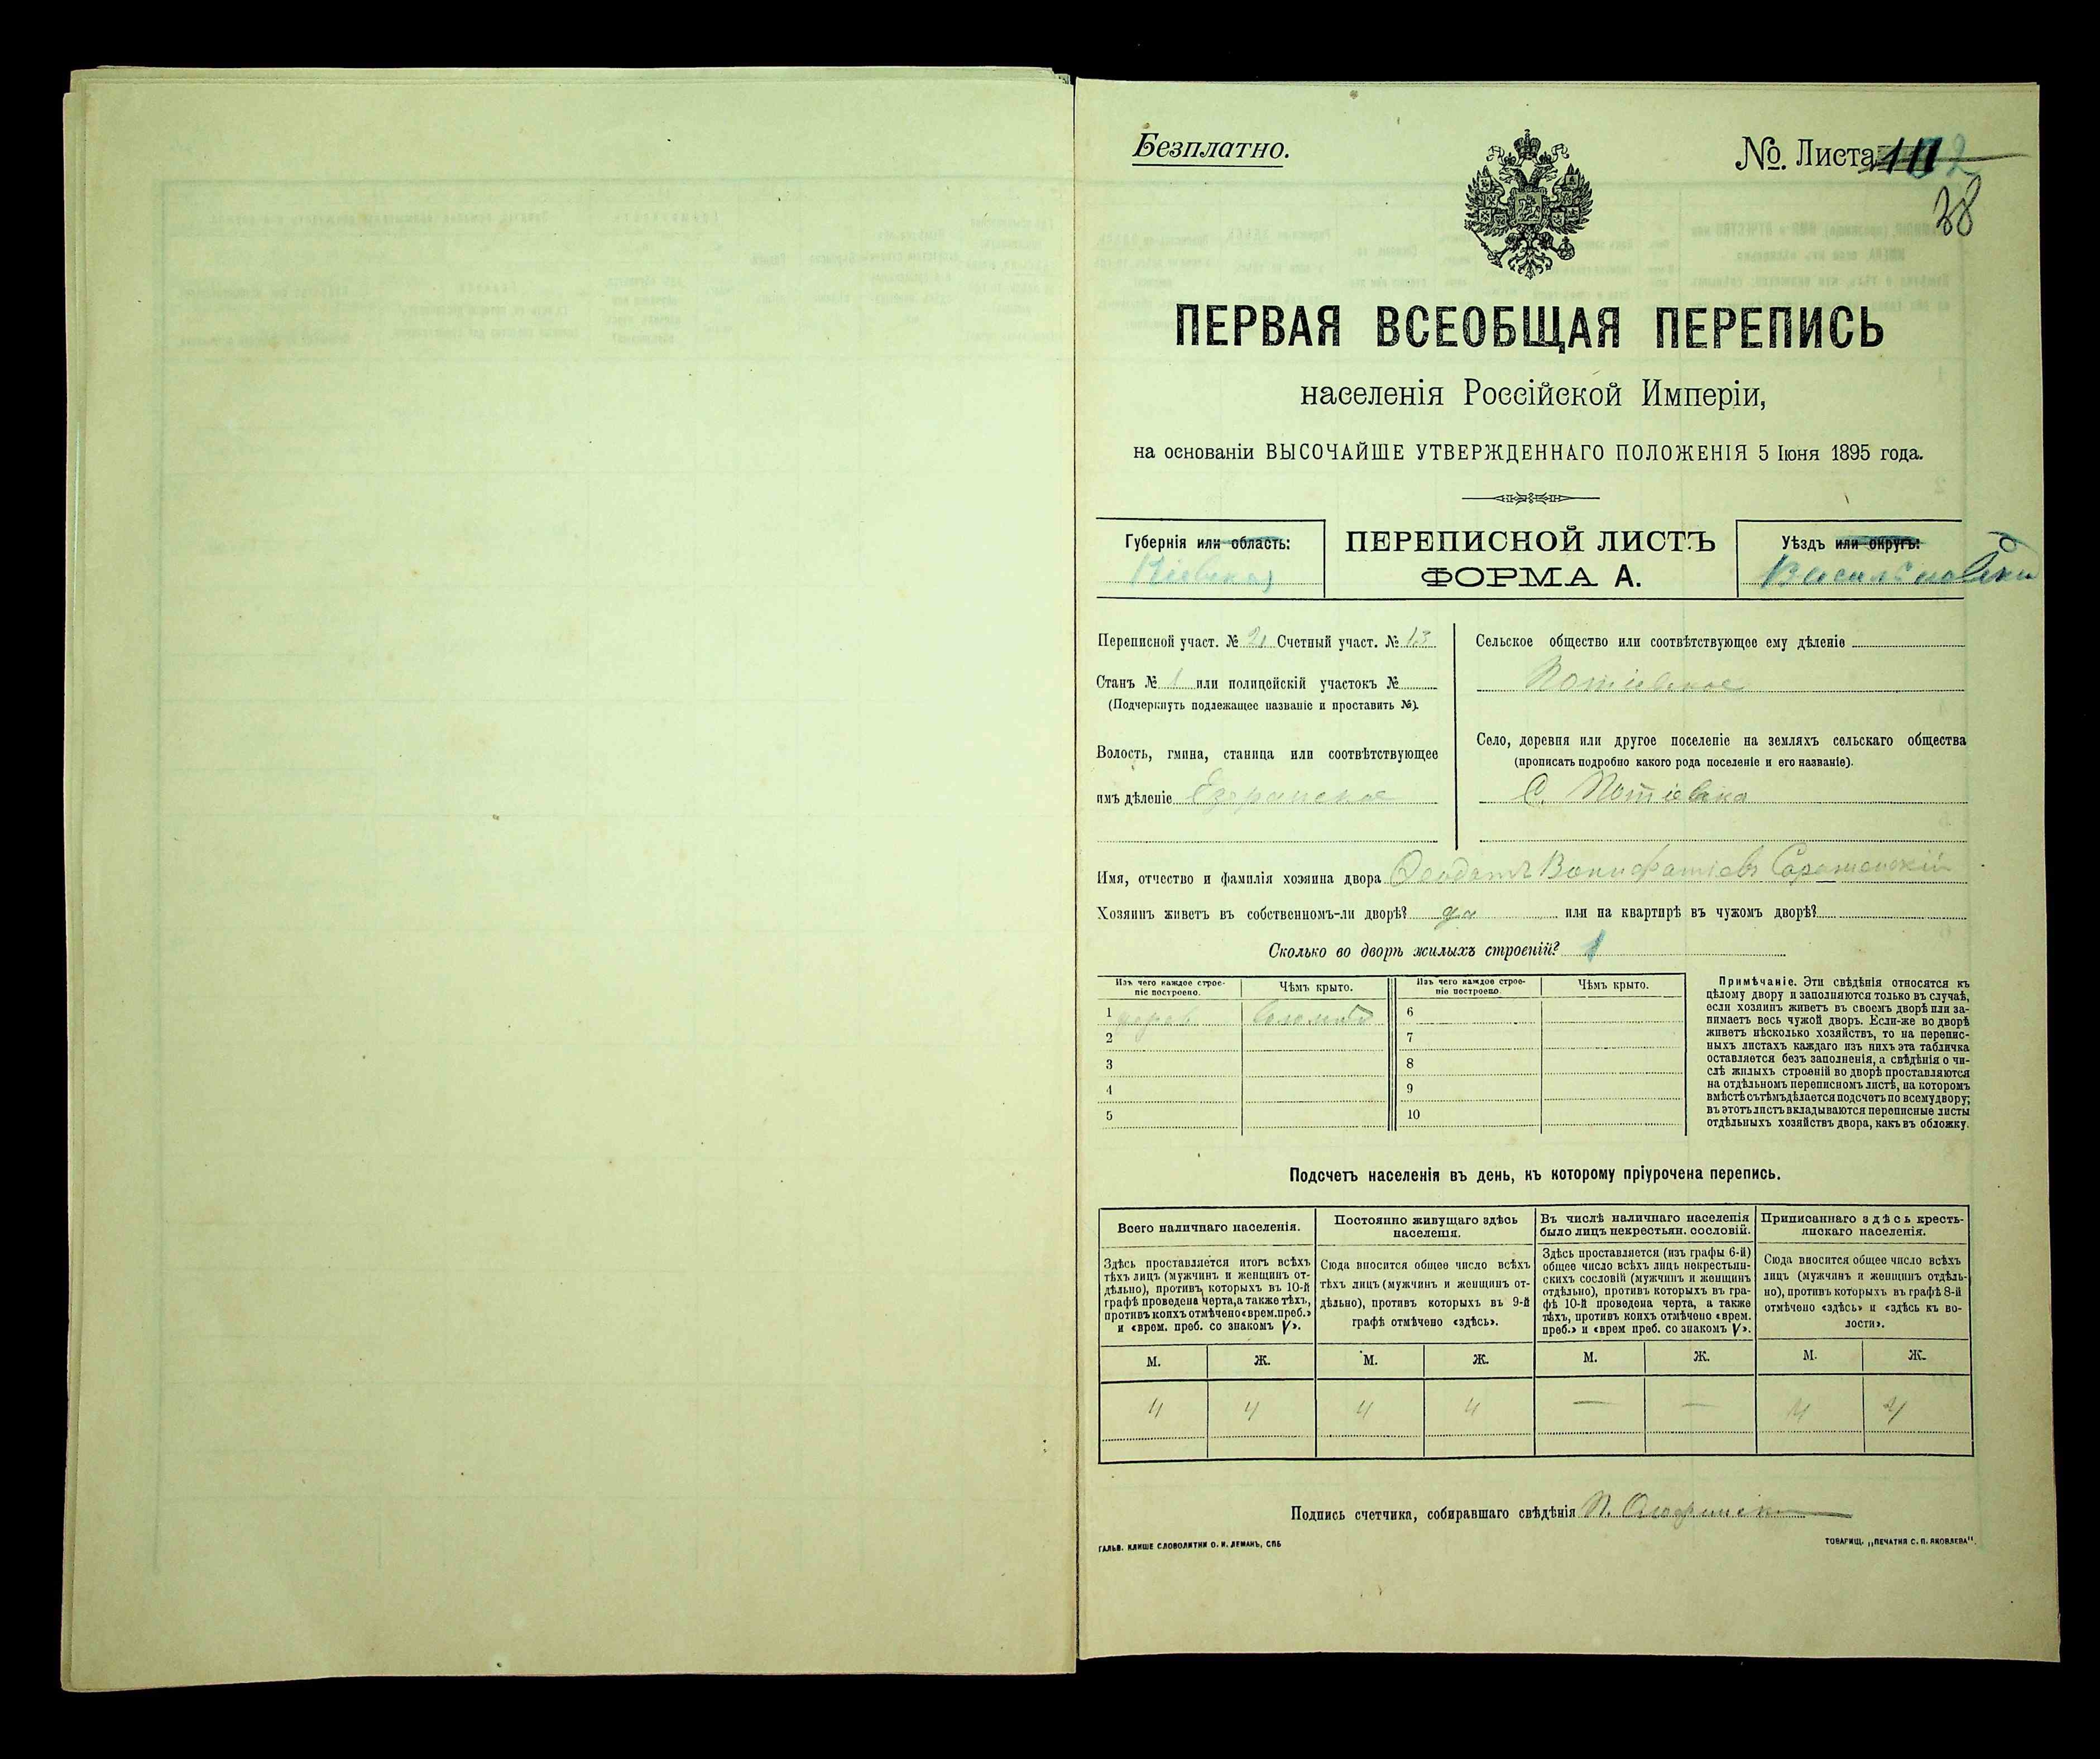 Безплатно.
№. Листа 111
38
ПЕРВАЯ ВСЕОБЩАЯ ПЕРЕПИСЬ
населенія Россійской Имперіи,
на основаніи ВЫСОЧАЙШЕ УТВЕРЖДЕННАГО ПОЛОЖЕНІЯ 5 Іюня 1895 года.
Губернія или область:
Кіевская
ПЕРЕПИСНОЙ ЛИСТЪ
ФОРМА А.
Уѣздъ или округъ:
Васильковскій
Переписной участ. № 2 Счетный участ. № 13
Станъ № 1 или полицейскій участокъ №
(Подчеркнуть подлежащее названіе и проставить №).
Волость, гмина, станица или соотвѣтствующее
имъ дѣленіе Езерянское
Сельское общество или соотвѣтствующее ему дѣленіе
Потіевское
Село, деревня или другое поселеніе на земляхъ сельскаго общества
(прописать подробно какого рода поселеніе и его названіе).
С. Потіевка
Имя, отчество и фамилія хозяина двора Феодотъ Вонифатіевъ
Хозяинъ живетъ въ собственномъ-ли дворѣ? да или на квартирѣ въ чужомъ дворѣ?
Сколько во дворѣ жилыхъ строеній? 1
Изъ чего каждое строеніе построено.
Чѣмъ крыто.
Изъ чего каждое строеніе построено.
Чѣмъ крыто.
1 дерев. соломой 6
2 7
3 8
4 9
5 10
Примѣчаніе. Эти свѣдѣнія относятся къ
цѣлому двору и заполняются только въ случаѣ,
если хозяинъ живетъ въ своемъ дворѣ или за-
нимаетъ весь чужой дворъ. Если-же во дворѣ
живетъ нѣсколько хозяйствъ, то на перепис-
ныхъ листахъ каждаго изъ нихъ эта табличка
оставляется безъ заполненія, а свѣдѣнія о чи-
слѣ жилыхъ строеній во дворѣ проставляются
на отдѣльномъ переписномъ листѣ, на которомъ
вмѣстѣ съ тѣмъ дѣлается подсчетъ по всему двору;
въ этотъ листъ вкладываются переписные листы
отдѣльныхъ хозяйствъ двора, какъ въ обложку.
Подсчетъ населенія въ день, къ которому пріурочена перепись.
Всего наличнаго населенія.
Здѣсь проставляется итогъ всѣхъ
тѣхъ лицъ (мужчинъ и женщинъ от-
дѣльно), противъ которыхъ въ 10-й
графѣ проведена черта, а также тѣхъ,
противъ коихъ отмѣчено «врем. преб.»
и «врем. преб. со знакомъ V».
Постоянно живущаго здѣсь
населенія.
Сюда вносится общее число всѣхъ
тѣхъ лицъ (мужчинъ и женщинъ от-
дѣльно), противъ которыхъ въ 9-й
графѣ отмѣчено «здѣсь».
Въ числѣ наличнаго населенія
было лицъ некрестьян. сословій.
Здѣсь проставляется (изъ графы 6-й)
общее число всѣхъ лицъ некрестьян-
скихъ сословій (мужчинъ и женщинъ
отдѣльно), противъ которыхъ въ гра-
фѣ 10-й проведена черта, а также
тѣхъ, противъ коихъ отмѣчено «врем.
преб.» и «врем преб. со знакомъ V».
Приписаннаго здѣсь кресть-
янскаго населенія.
Сюда вносится общее число всѣхъ
лицъ (мужчинъ и женщинъ отдѣль-
но), противъ которыхъ въ графѣ 8-й
отмѣчено «здѣсь» и «здѣсь къ во-
лости».
М. Ж. М. Ж. М. Ж. М. Ж.
4 4 4 4 — — 4 4
Подпись счетчика, собиравшаго свѣдѣнія
ГАЛЬВ. КЛИШЕ СЛОВОЛИТНИ О. И. ЛЕМАНЪ, СПБ
ТОВАРИЩ. „ПЕЧАТНЯ С. П. ЯКОВЛЕВА".